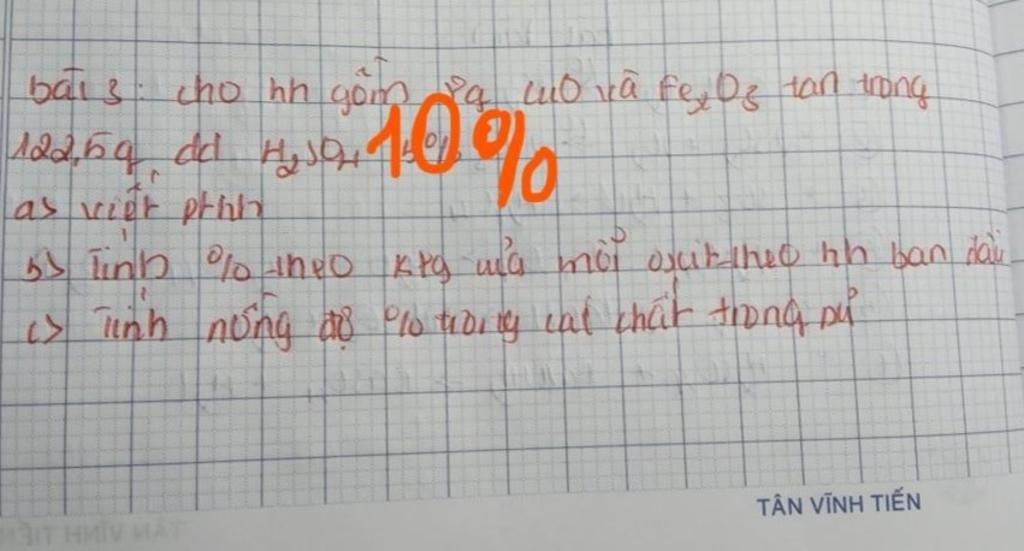 bài 3: cho hh gồm 8g CuO và Fe2O3 tan trong
122,5g dd H2SO4 10%
a> viết pthh
b> Tính % theo klg của mỗi oxit theo hh ban đầu
c> Tính nồng độ % trong các chất trong pứ
TÂN VĨNH TIẾN